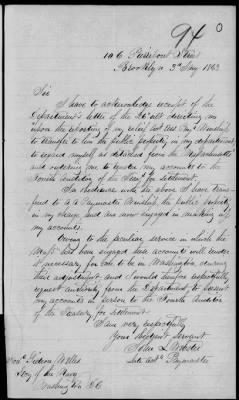 94
106. Pierrepont Street
Brooklyn 3d May 1863
Sir
I have to acknowledge receipt of the
Department's letter of the 26th ult directing me
upon the reporting of my relief Act Asst Paymr
to transfer to him the public property in my department,
to regard myself as detached from the Massachusetts
and ordering me to render my accounts to the
Fourth Auditor of the Treasy for settlement.
In obedience with the above I have trans-
ferred to A. A. Paymaster the public property
in my charge and am now engaged in making up
my accounts.
Owing to the peculiar service in which the
Massts has been engaged these accounts will render
it necessary, for me to be in Washington, during
their adjustment and I would therefore respectfully
request authority from the Department to present
my accounts in person to the Fourth Auditor
of the Treasury for settlement
I am very respectfully
Your Obedient Servant
John
Late Act Paymaster
Honl Gideon Welles
Secy of the Navy
Washington D.C